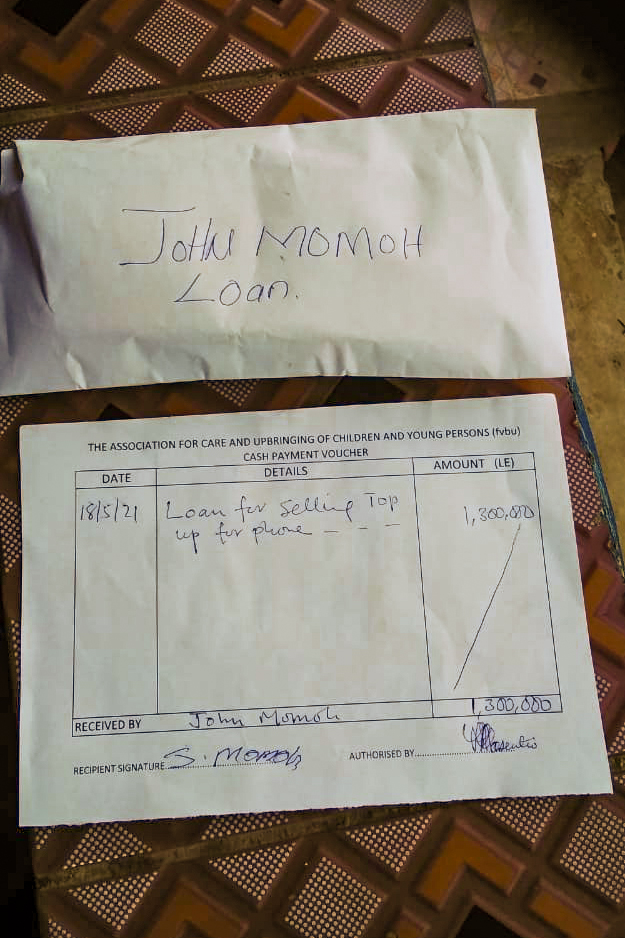 JOHN MOMOH
Loan.
THE ASSOCIATION FOR CARE AND UPBRINGING OF CHILDREN AND YOUNG PERSONS (fvbu)
CASH PAYMENT VOUCHER
DATE DETAILS AMOUNT (LE)
18/5/21 Loan for Selling Top 1,300,000
up for phone - - -
1,300,000
RECEIVED BY John Momoh
RECIPIENT SIGNATURE S. MOMOh AUTHORISED BY